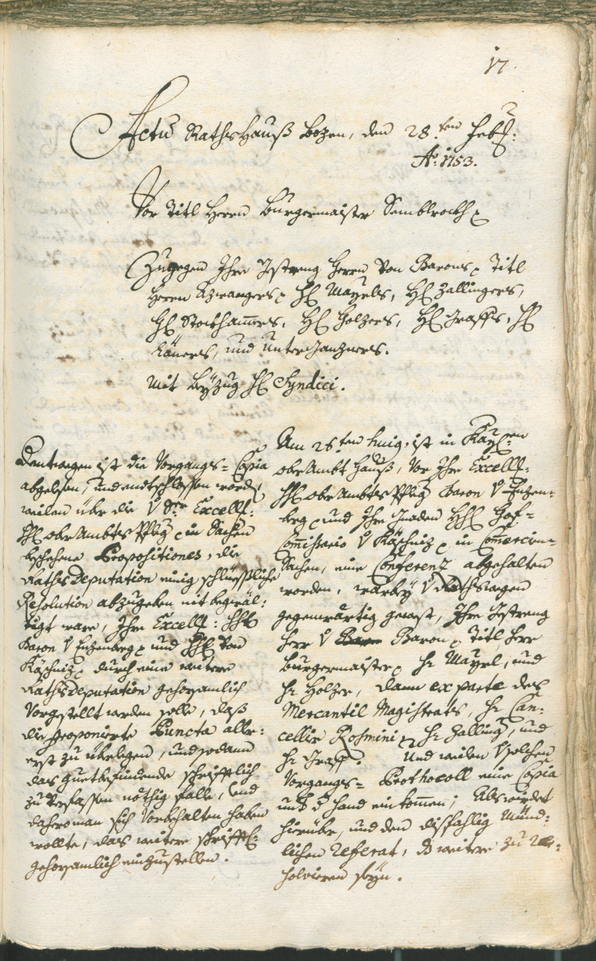 17.
Actum Rathshauß Bozen, den 28.ten Feb:
Ao: 1753.
Vor Titl Herrn Burgermaister
Zugegen Ihro Gestreng Herrn von Titl
Herrn H: Mayrls, H: Zallingers,
H: Stockhamers, H: Holzers, H: Graffs, H:
und
mit Beyzug H: Syndici.
Dentwegen ist die Vorgangs-Copia
abgelesen, und entschlossen worden,
weilen über die v. Sr Excell:
H: ober Ambts in Sachen
beschehene Propositiones, die
Raths Deputation einig schlüssliche
Resolution abzugeben nit begwäl:
tigt ware, Ihro Excell:
Baron v. Enzenberg und von
durch eine weitere
Raths Deputation gehorsamlich
Vorgestellt werden solle, daß
die proponierte Puncta aller:
erst zu überlegen, und sodann
das guetbefindende schrifftlich
zu Verfassen nöthig falle, und
dahero man sich Vorbehalten haben
wollte, das weitere schrifftl:
gehorsamlich einzustellen.
Am 26ten huius ist in
ober Ambt Hauß, vor Ihro Excell:
H: ober Ambts Baron v. Enzen:
berg und Ihro Gnaden Hof:
Comissario v. in Comercien
Sachen, eine Conferenz abgehalten
worden, warbey v. Raths wegen
gegenwärtig gewest, Ihro Gestreng
Herr v. Baron Titl Herr
Burgermaister, H: Mayrl, und
H: Holzer, dann ex parte des
Mercantil Magistrats, H: Can:
cellier Rosmini, H: Zalling: und
H: Graff. Und weilen v. solchem
Vorgangs-Prothocoll eine Copia
hand einkommen; Als wirdet
hierüber, und den disfählig Münd:
lichen Referat, weitere zu Re:
solvieren seyn.